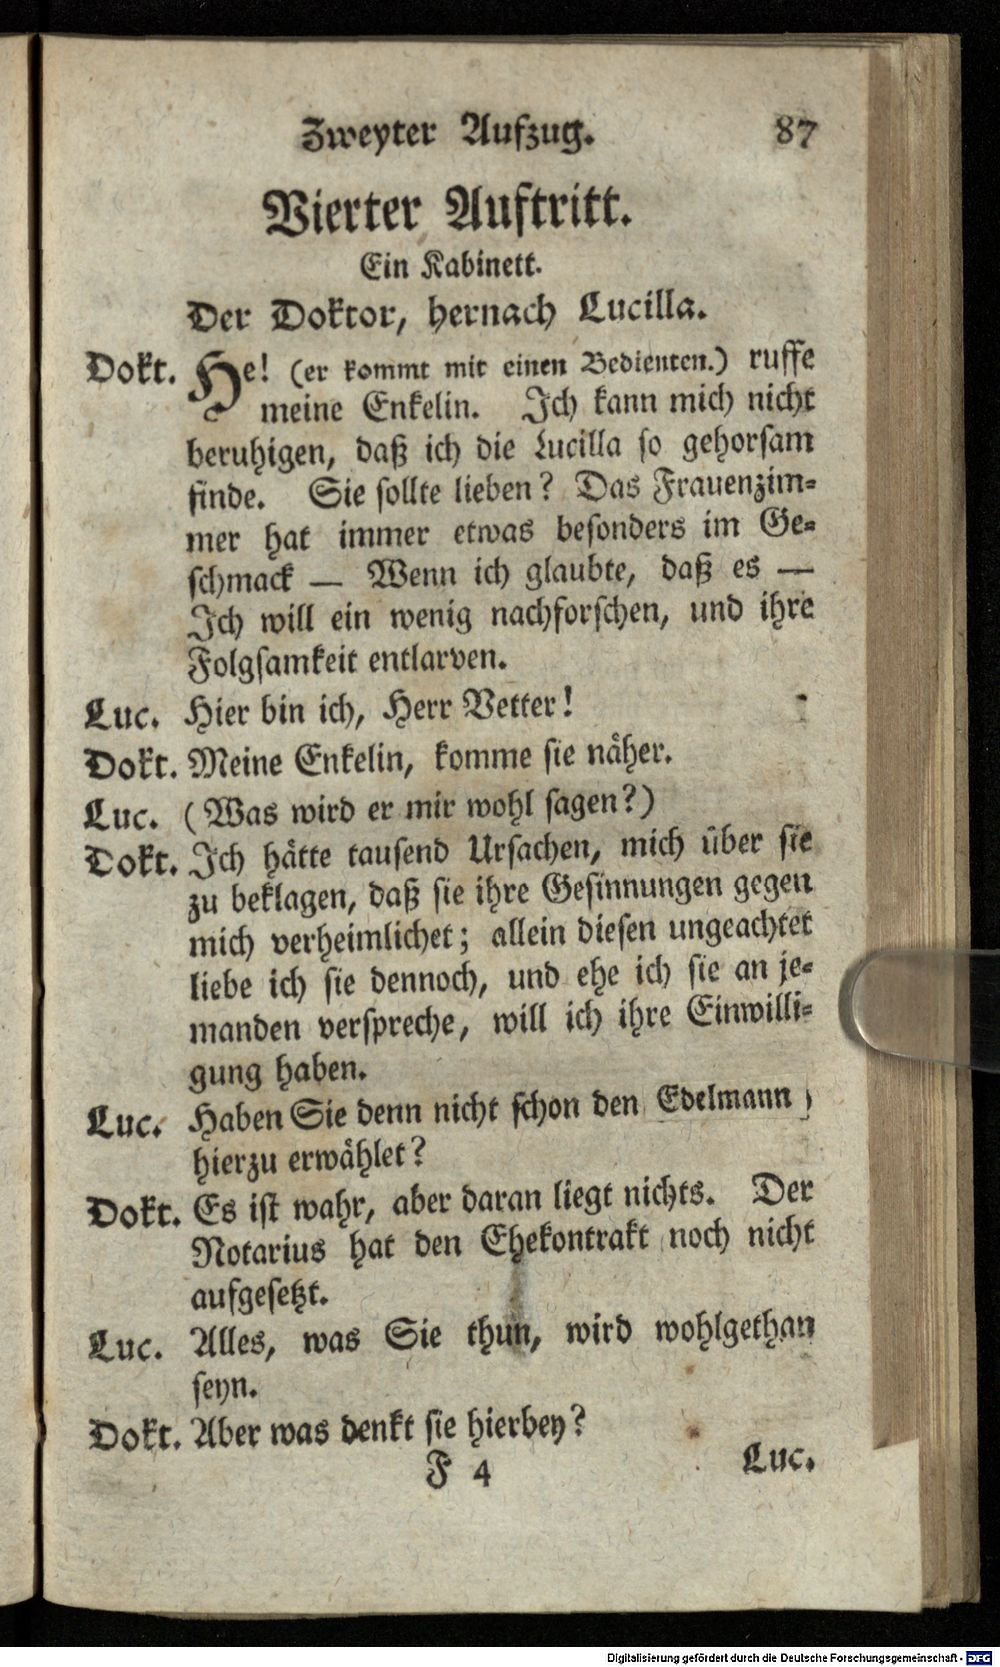 Zweyter Aufzug. 87
Vierter Auftritt.
Ein Kabinett.
Der Doktor, hernach Lucilla.
Dokt. He! (er kommt mit einen Bedienten.) ruffe
meine Enkelin. Ich kann mich nicht
beruhigen, daß ich die Lucilla so gehorsam
finde. Sie sollte lieben? Das Frauenzim-
mer hat immer etwas besonders im Ge-
schmack — Wenn ich glaubte, daß es —
Ich will ein wenig nachforschen, und ihre
Folgsamkeit entlarven.
Luc. Hier bin ich, Herr Vetter!
Dokt. Meine Enkelin, komme sie näher.
Luc. (Was wird er mir wohl sagen?)
Dokt. Ich hätte tausend Ursachen, mich über sie
zu beklagen, daß sie ihre Gesinnungen gegen
mich verheimlichet; allein diesen ungeachtet
liebe ich sie dennoch, und ehe ich sie an je-
manden verspreche, will ich ihre Einwilli-
gung haben.
Luc. Haben Sie denn nicht schon den Edelmann
hierzu erwählet?
Dokt. Es ist wahr, aber daran liegt nichts. Der
Notarius hat den Ehekontrakt noch nicht
aufgesetzt.
Luc. Alles, was Sie thun, wird wohlgethan
seyn.
Dokt. Aber was denkt sie hierbey?
F 4 Luc.
Digitalisierung gefördert durch die Deutsche Forschungsgemeinschaft - DFG